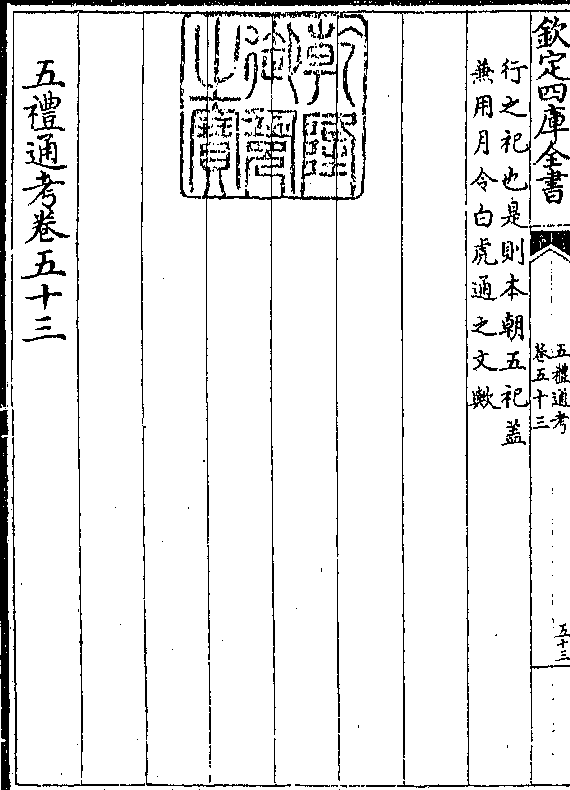 欽定四庫全書
五禮通考
卷五十三
五十三
行之祀也是則本朝五祀蓋
兼用月令白虎通之文歟
乾隆
御覽
之寶
五禮通考卷五十三